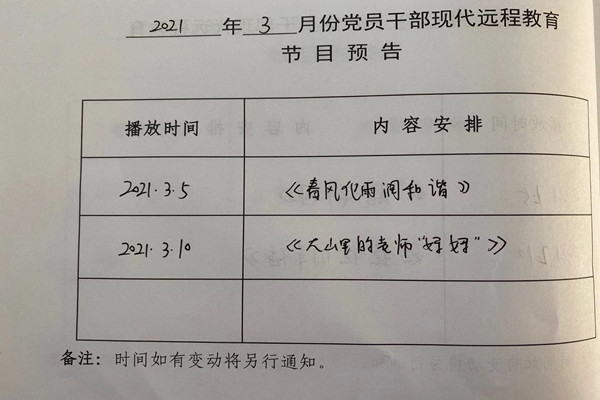 2021 年 3 月份党员干部现代远程教育
节目预告
播放时间 内容安排
2021.3.5 《春风化雨润和谐》
2021.3.10 《大山里的老师“妈妈”》
备注：时间如有变动将另行通知。